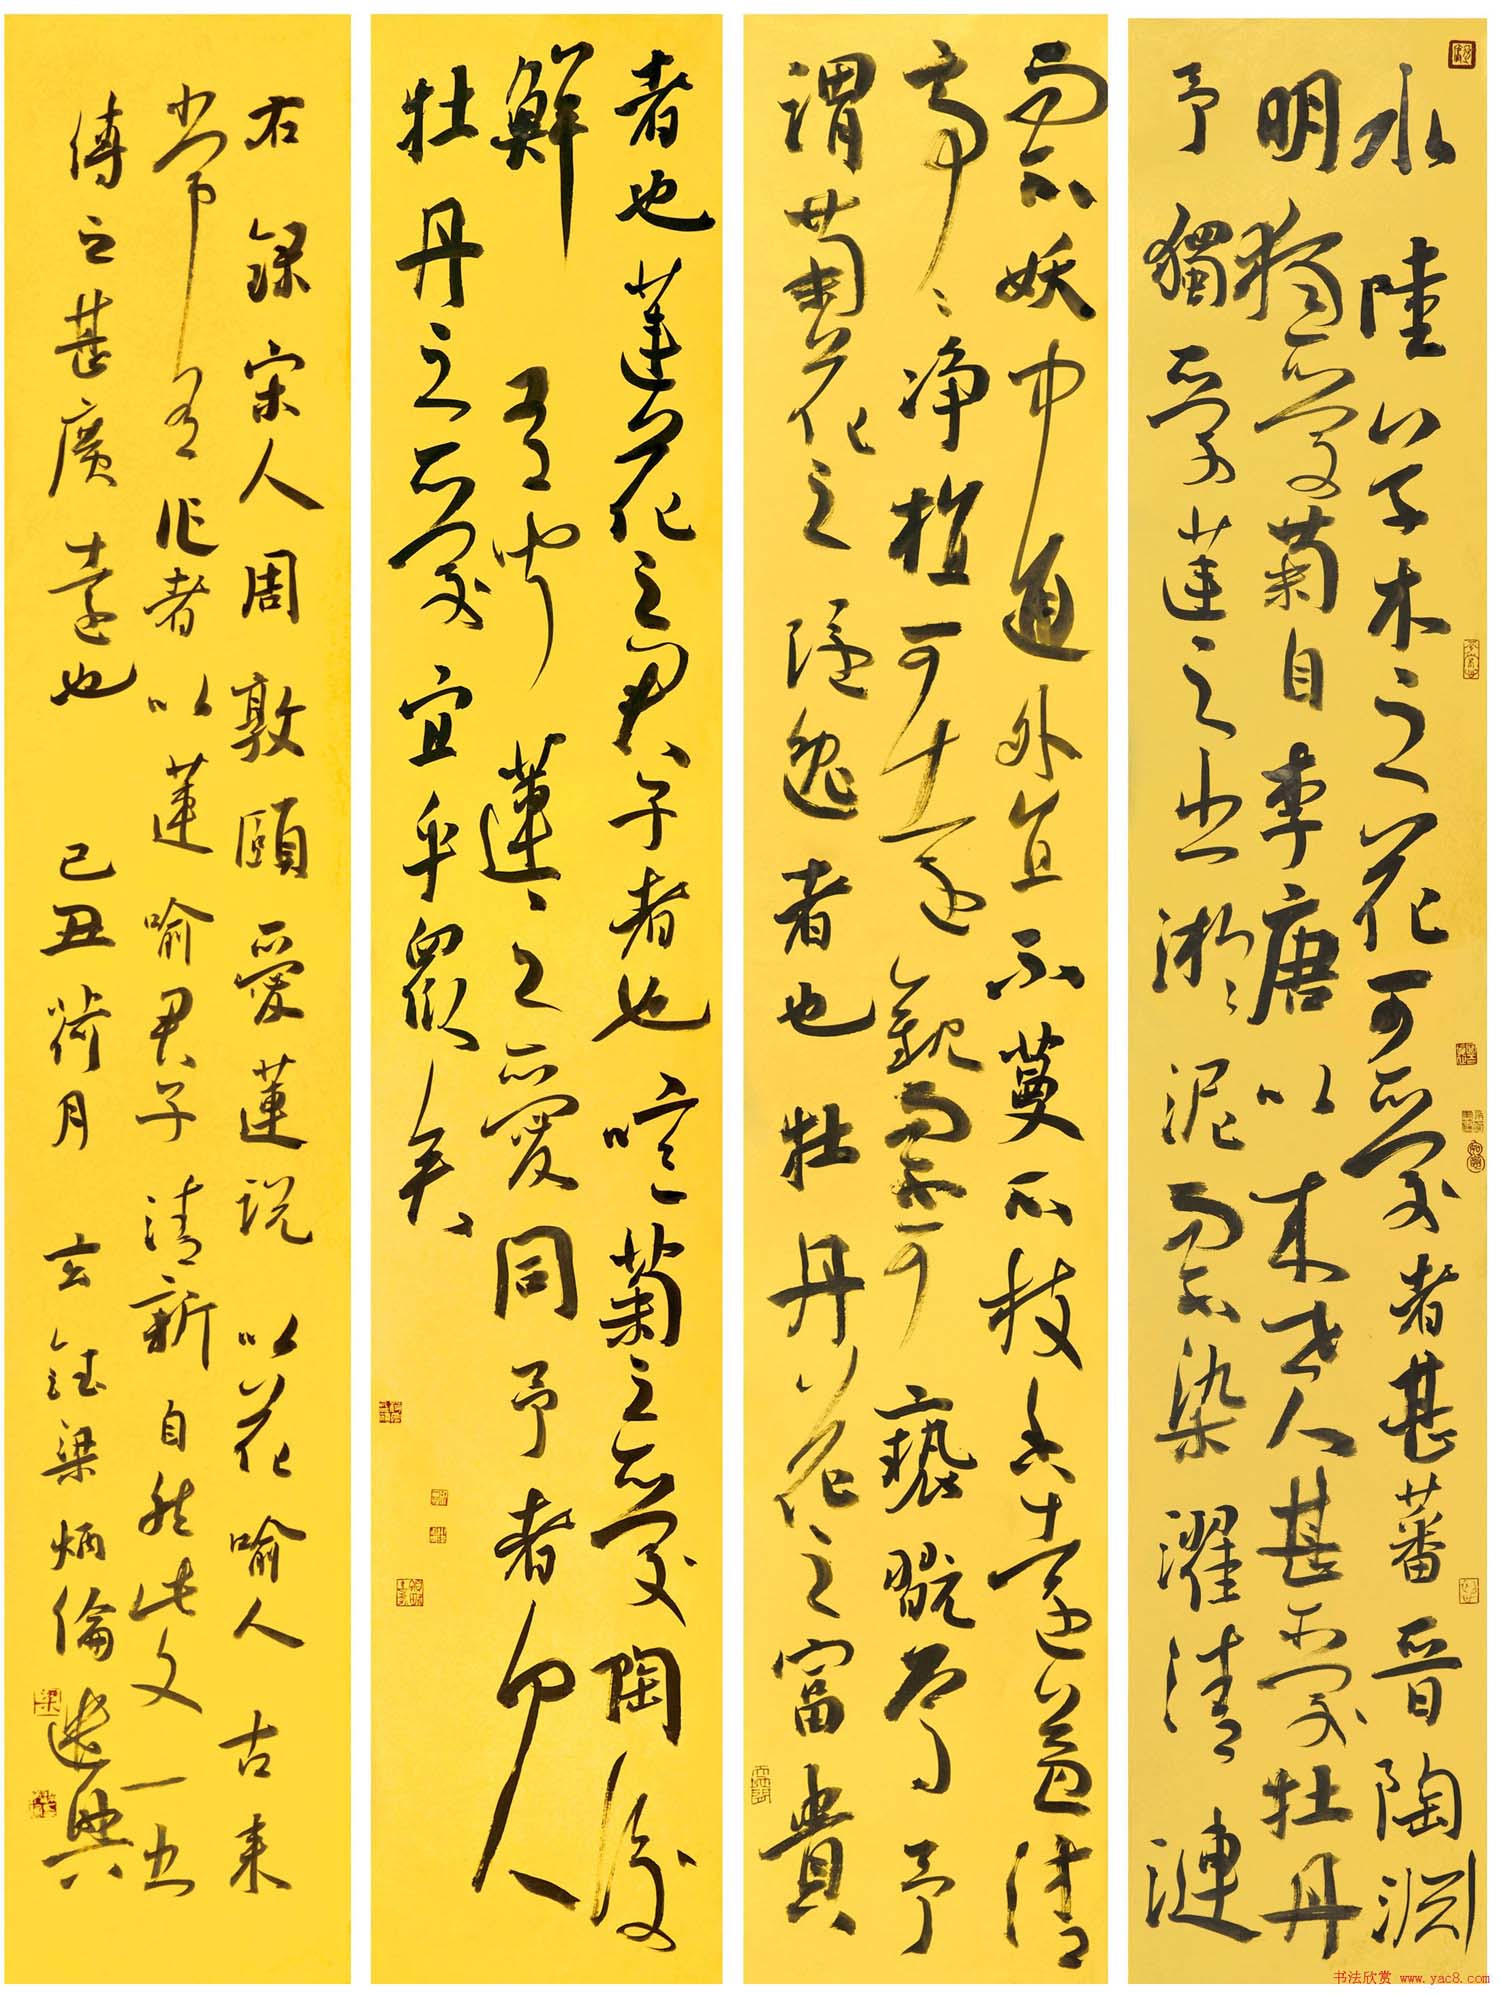 水陸草木之花可愛者甚蕃晉陶淵
明獨愛菊自李唐以來世人甚愛牡丹
予獨愛蓮之出淤泥而不染濯清漣
而不妖中通外直不蔓不枝香遠益清
亭〻净植可遠觀而不可褻翫焉予
謂菊花之隱逸者也牡丹花之富貴
者也蓮花之君子者也噫菊之愛陶後
鮮有聞蓮〻之愛同予者何人
牡丹之愛宜乎眾矣
右錄宋人周敦頤愛蓮説以花喻人古来
常有作者以蓮喻君子清新自然此文一出
傳之甚廣遠也己丑荷月梁炳倫遣興
书法欣赏 www.yac8.com